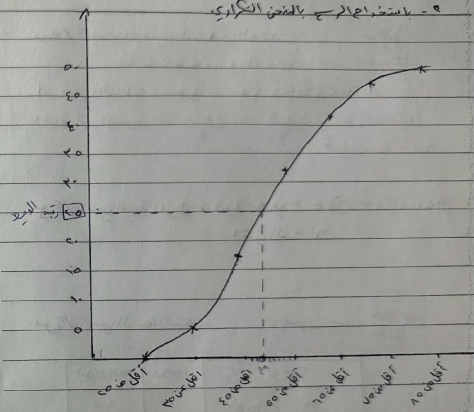 باستخدام الرسم بالمنحنى التكراري
٥٠
٤٥
٤٠
٣٥
٣٠
رتبة الوسيط ٢٥
٢٠
١٥
١٠
٥
أقل من ٢٠
أقل من ٣٠
أقل من ٤٠
أقل من ٥٠
أقل من ٦٠
أقل من ٧٠
أقل من ٨٠